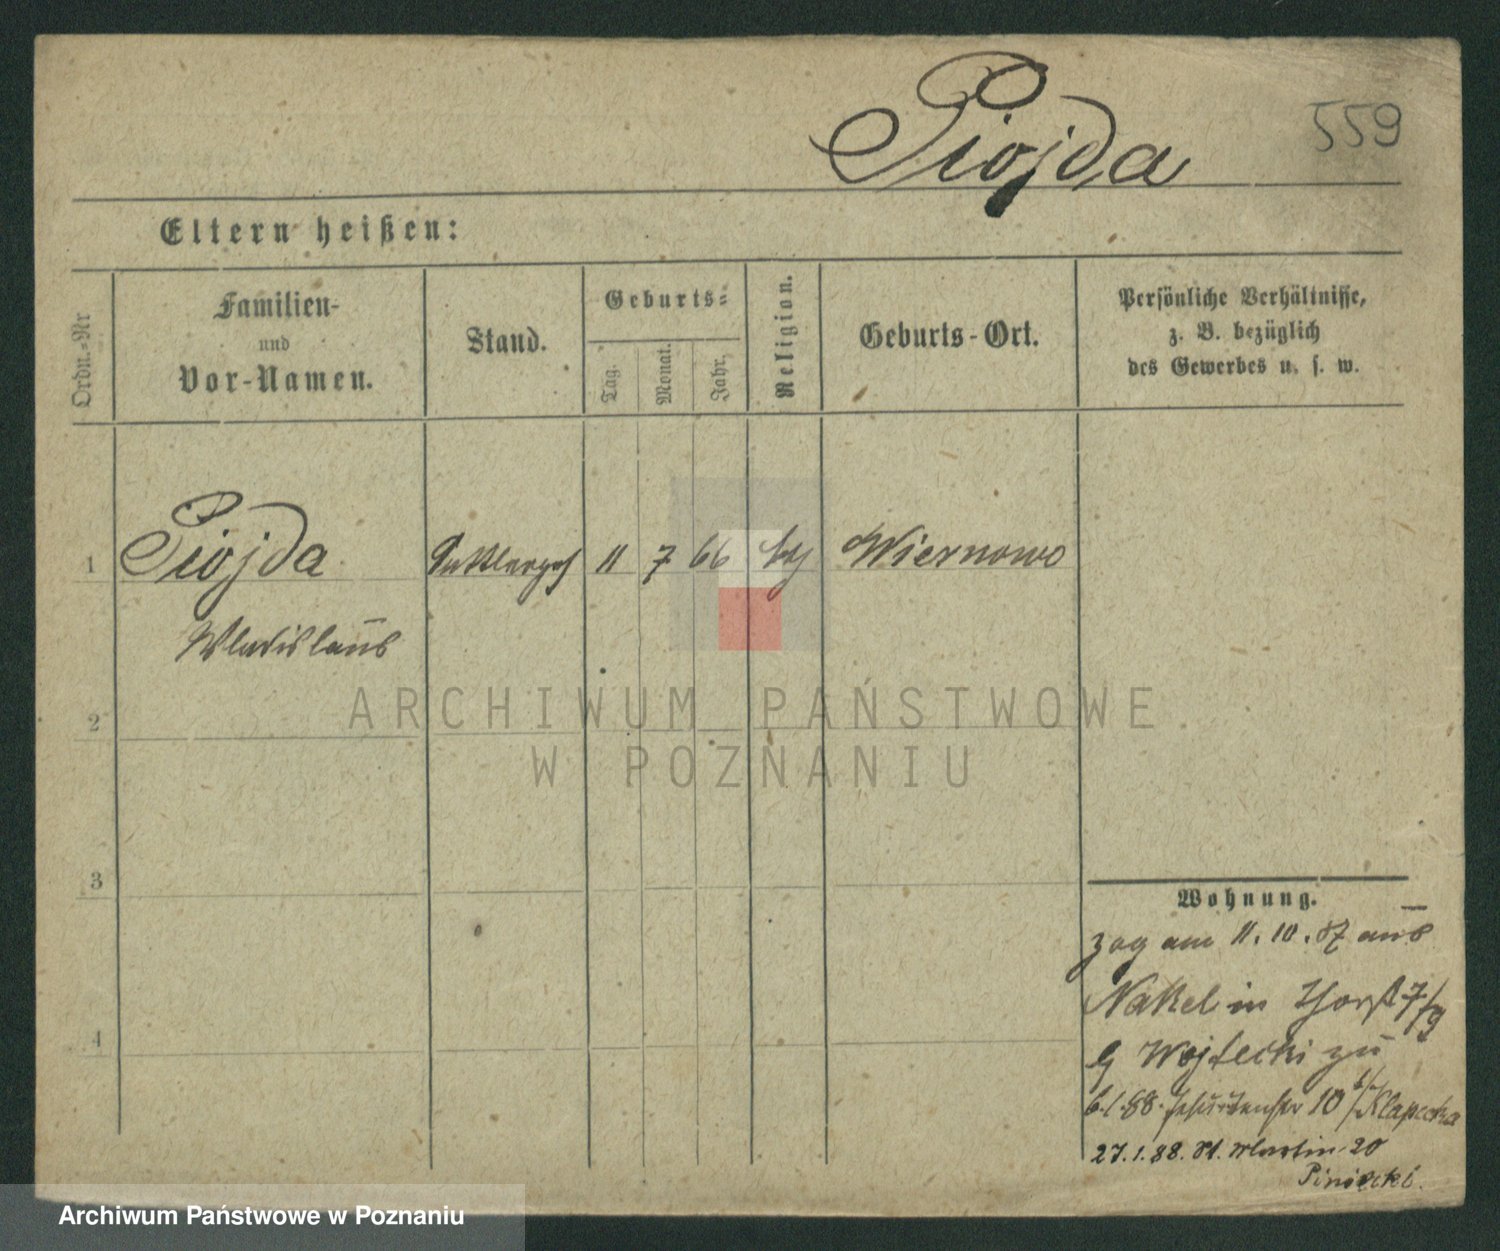 Piojda
559
Eltern heißen:
Ordn.-Nr
Familien-
und
Vor-Namen.
Stand.
Geburts-
Tag.
Monat.
Jahr.
Religion.
Geburts-Ort.
Persönliche Verhältnisse,
z. B. bezüglich
des Gewerbes u. s. w.
1 Piojda 11 7 66 kth Wiernowo
Wladislaus
2
3
4
Wohnung.
zog am 11.10.87 aus
Nakel in 7/9
Wojtecki zu
6.1.88. 10 b/
27.1.88. St. Martin 20
Piniecki.
ARCHIWUM PAŃSTWOWE
W POZNANIU
Archiwum Państwowe w Poznaniu